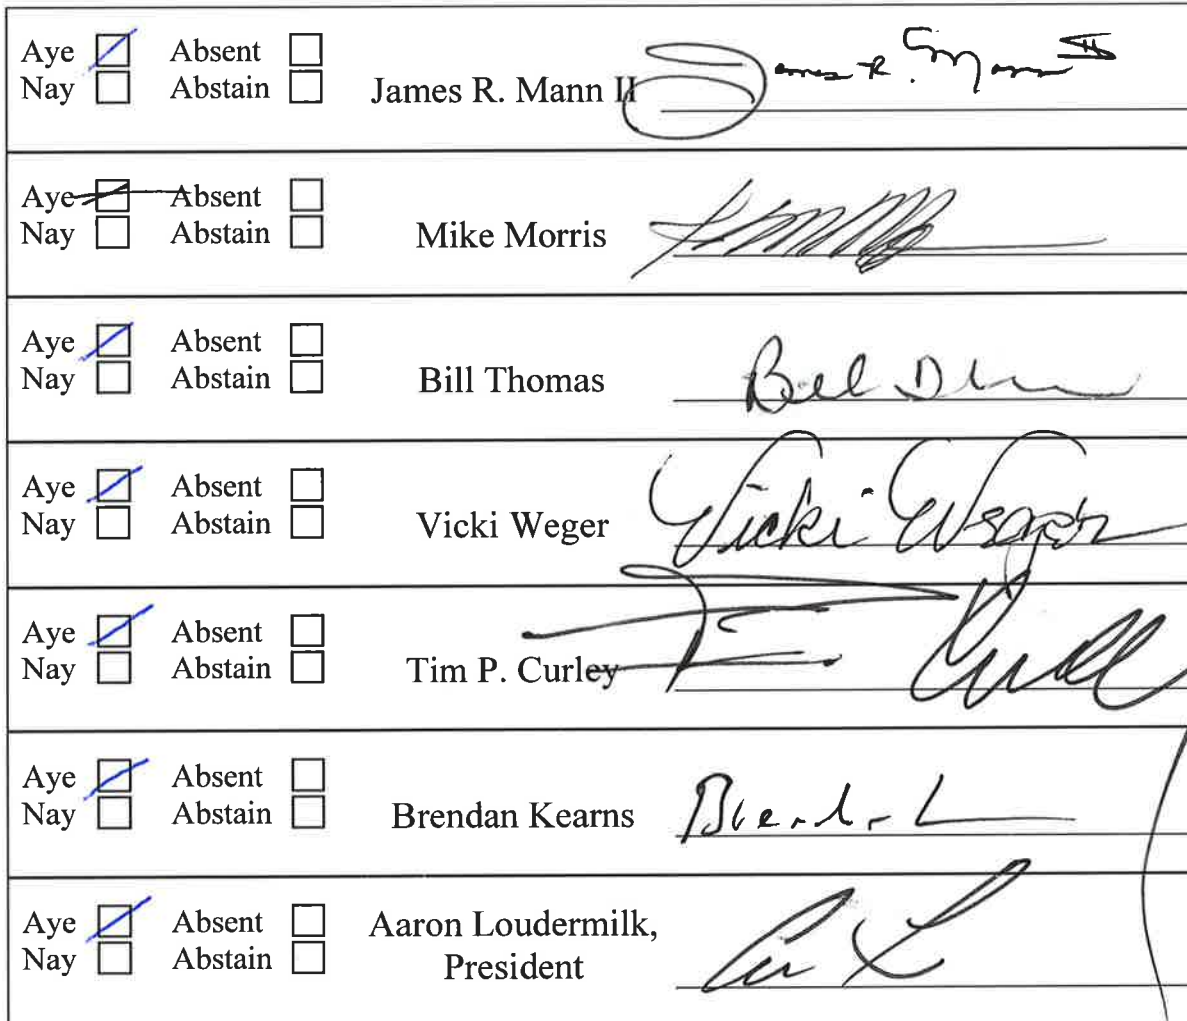 Aye Absent
Nay Abstain James R. Mann II James R. Mann II
Aye Absent
Nay Abstain Mike Morris
Aye Absent
Nay Abstain Bill Thomas Bill
Aye Absent
Nay Abstain Vicki Weger Vicki Weger
Aye Absent
Nay Abstain Tim P. Curley Tim
Aye Absent
Nay Abstain Brendan Kearns
Aye Absent Aaron Loudermilk,
Nay Abstain President